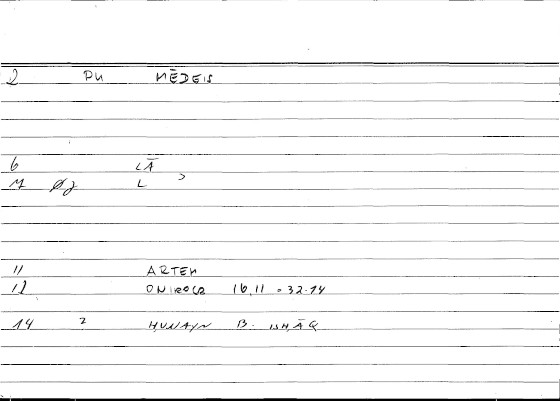 2 PN MĒDEIS
6 LĀ
M ØJ L >
11 ARTEM
12 ONIROCR 16,11 = 32.14
14 2 ḤUNAYN B. ISḤĀQ